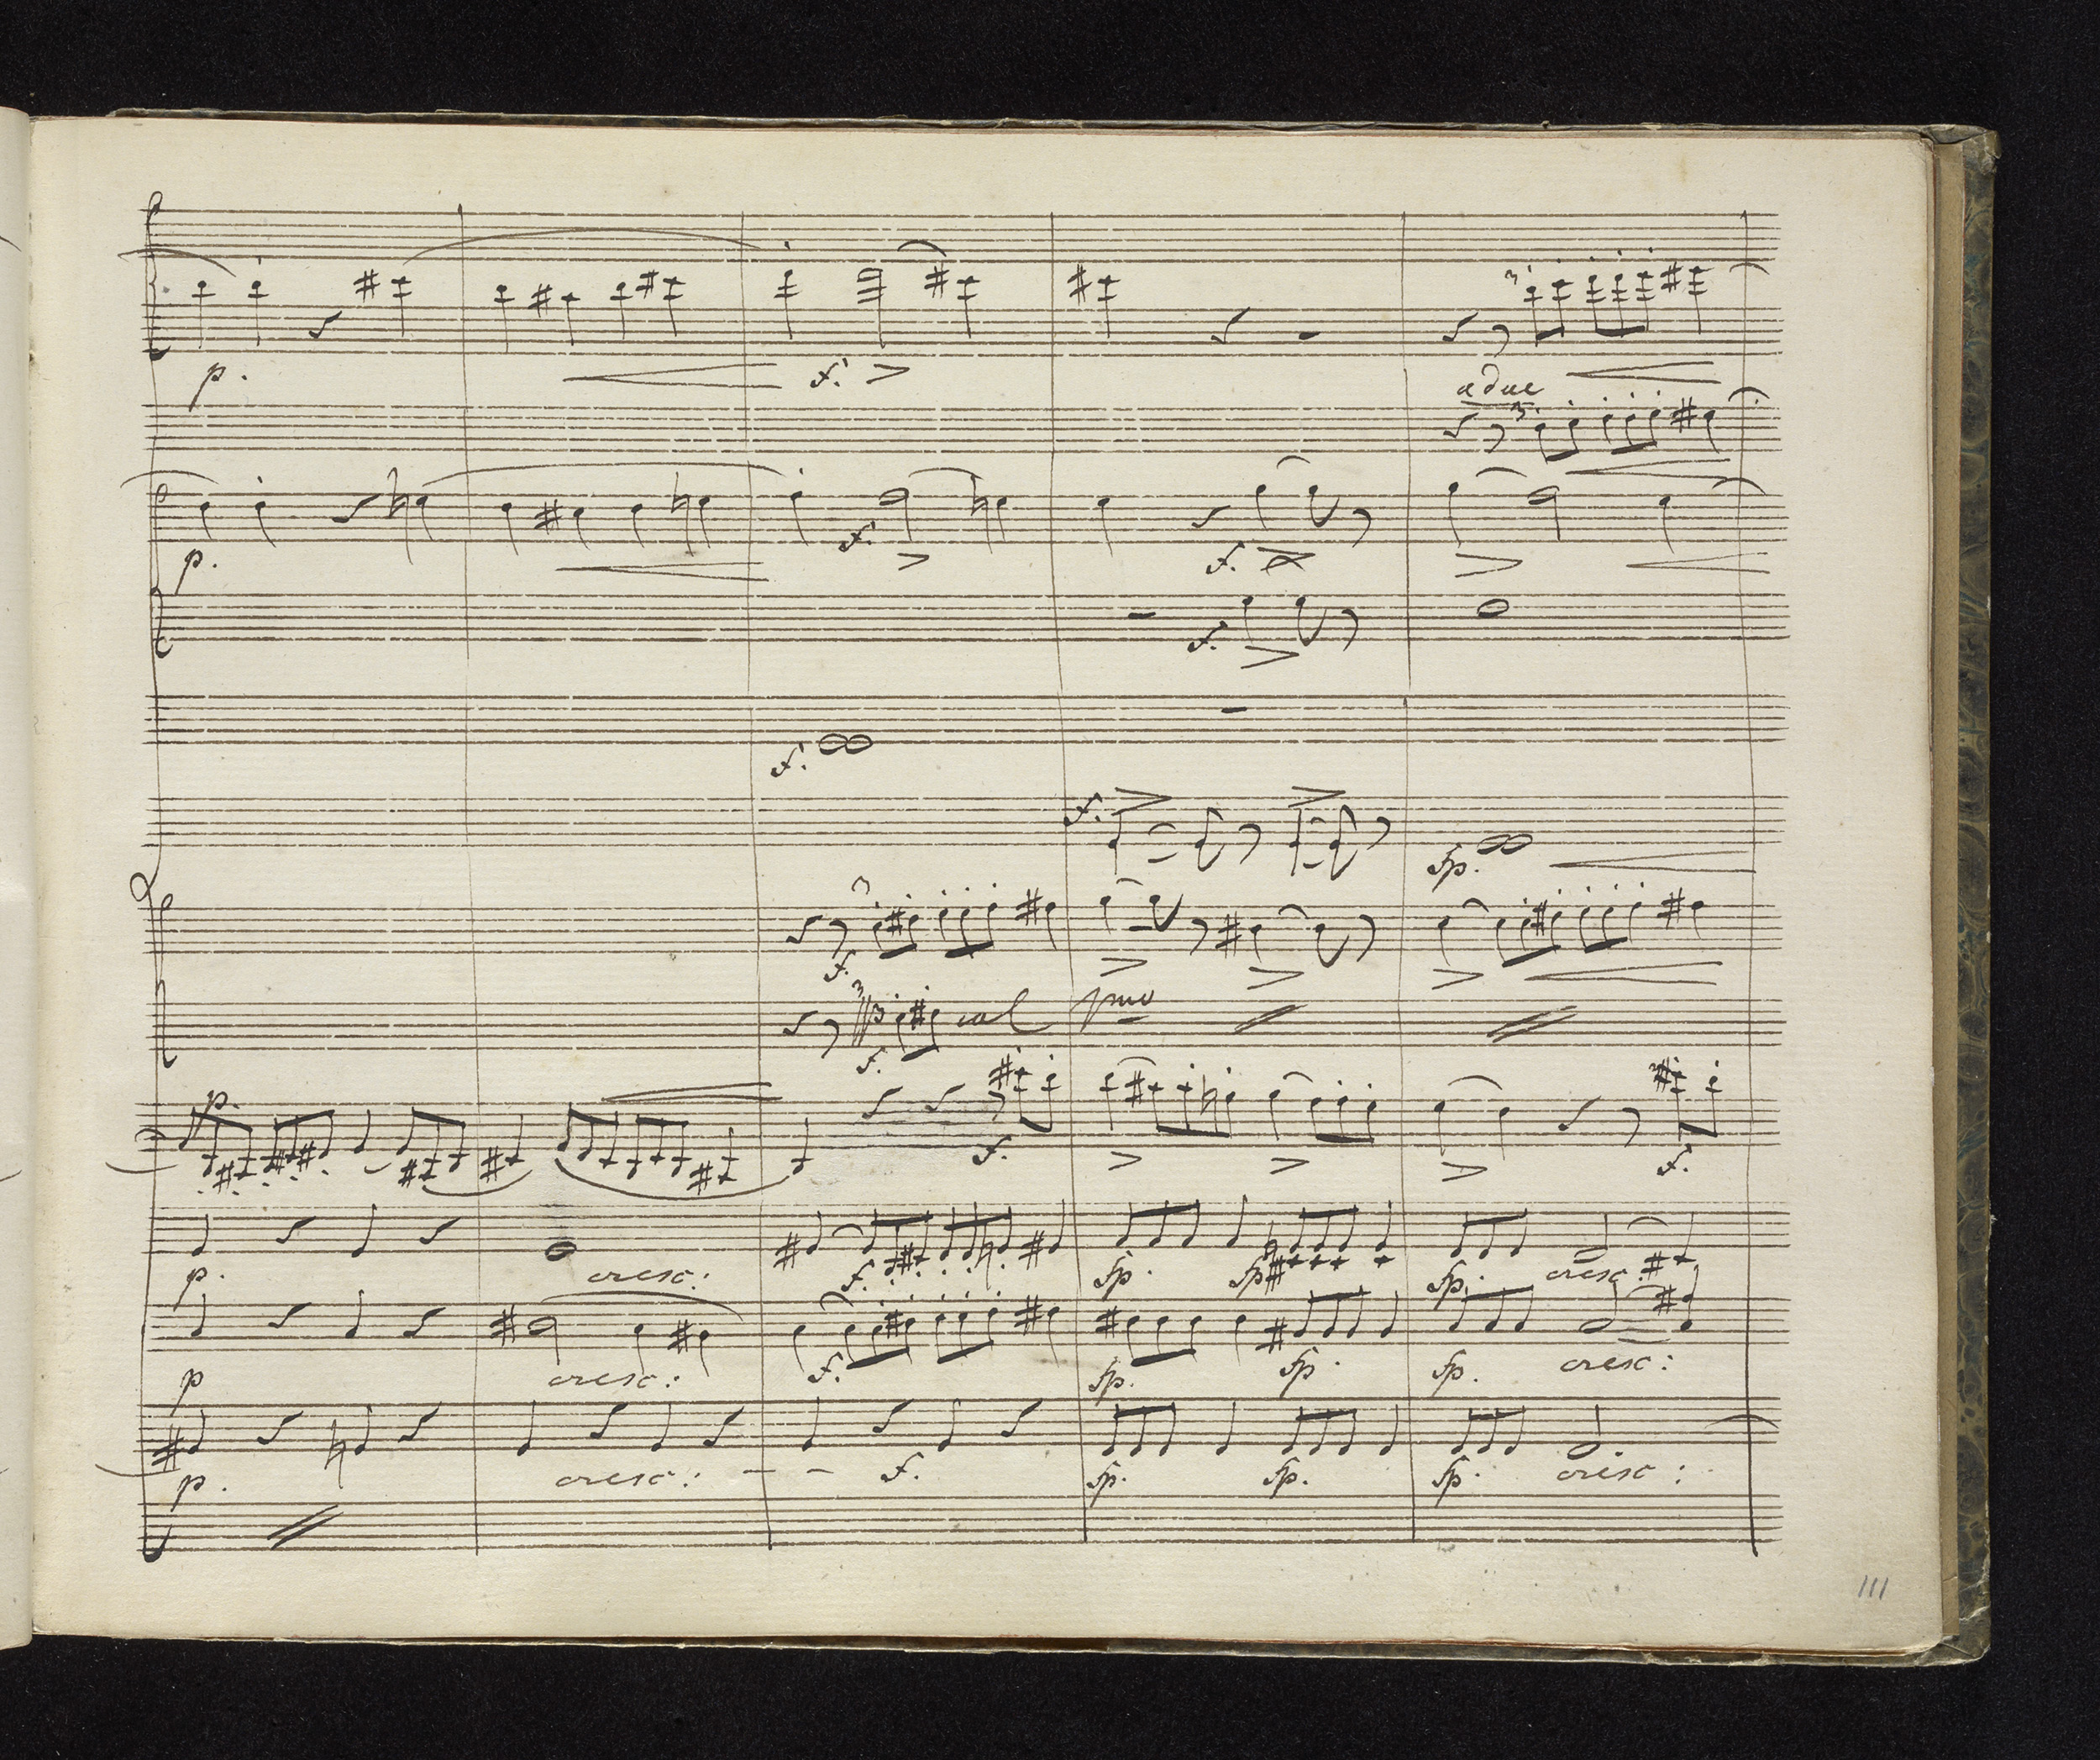 3
p. f.
a due
3
p. f. f.
f.
f.
f.
fp.
3
f.
3 col pmo
f.
p.
f. f.
p. cresc: f. fp. fp fp. cresc:
p cresc: f. fp. fp. fp. cresc:
p. cresc: - - f. fp. fp. fp. cresc:
111